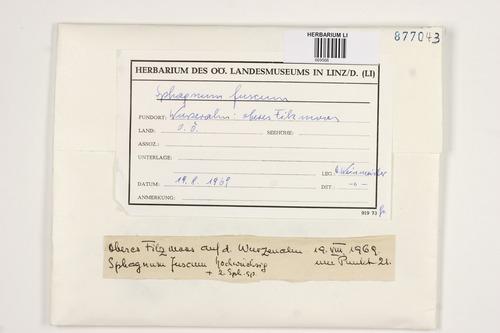 HERBARIUM LI
877043
HERBARIUM DES OÖ. LANDESMUSEUMS IN LINZ/D. (LI)
Sphagnum fuscum
FUNDORT: Wurzeralm: oberes Filzmoos
LAND: O.Ö. SEEHÖHE:
ASSOZ.:
UNTERLAGE:
LEG.: Weinmeister
DATUM: 19.8.1969 DET.: -"-
ANMERKUNG:
919 73
Oberes Filzmoos auf d. Wurzeralm 19. VIII. 1969
Sphagnum fuscum hochwüchsig um Punkt 21.
+ 2 Sph. sp.